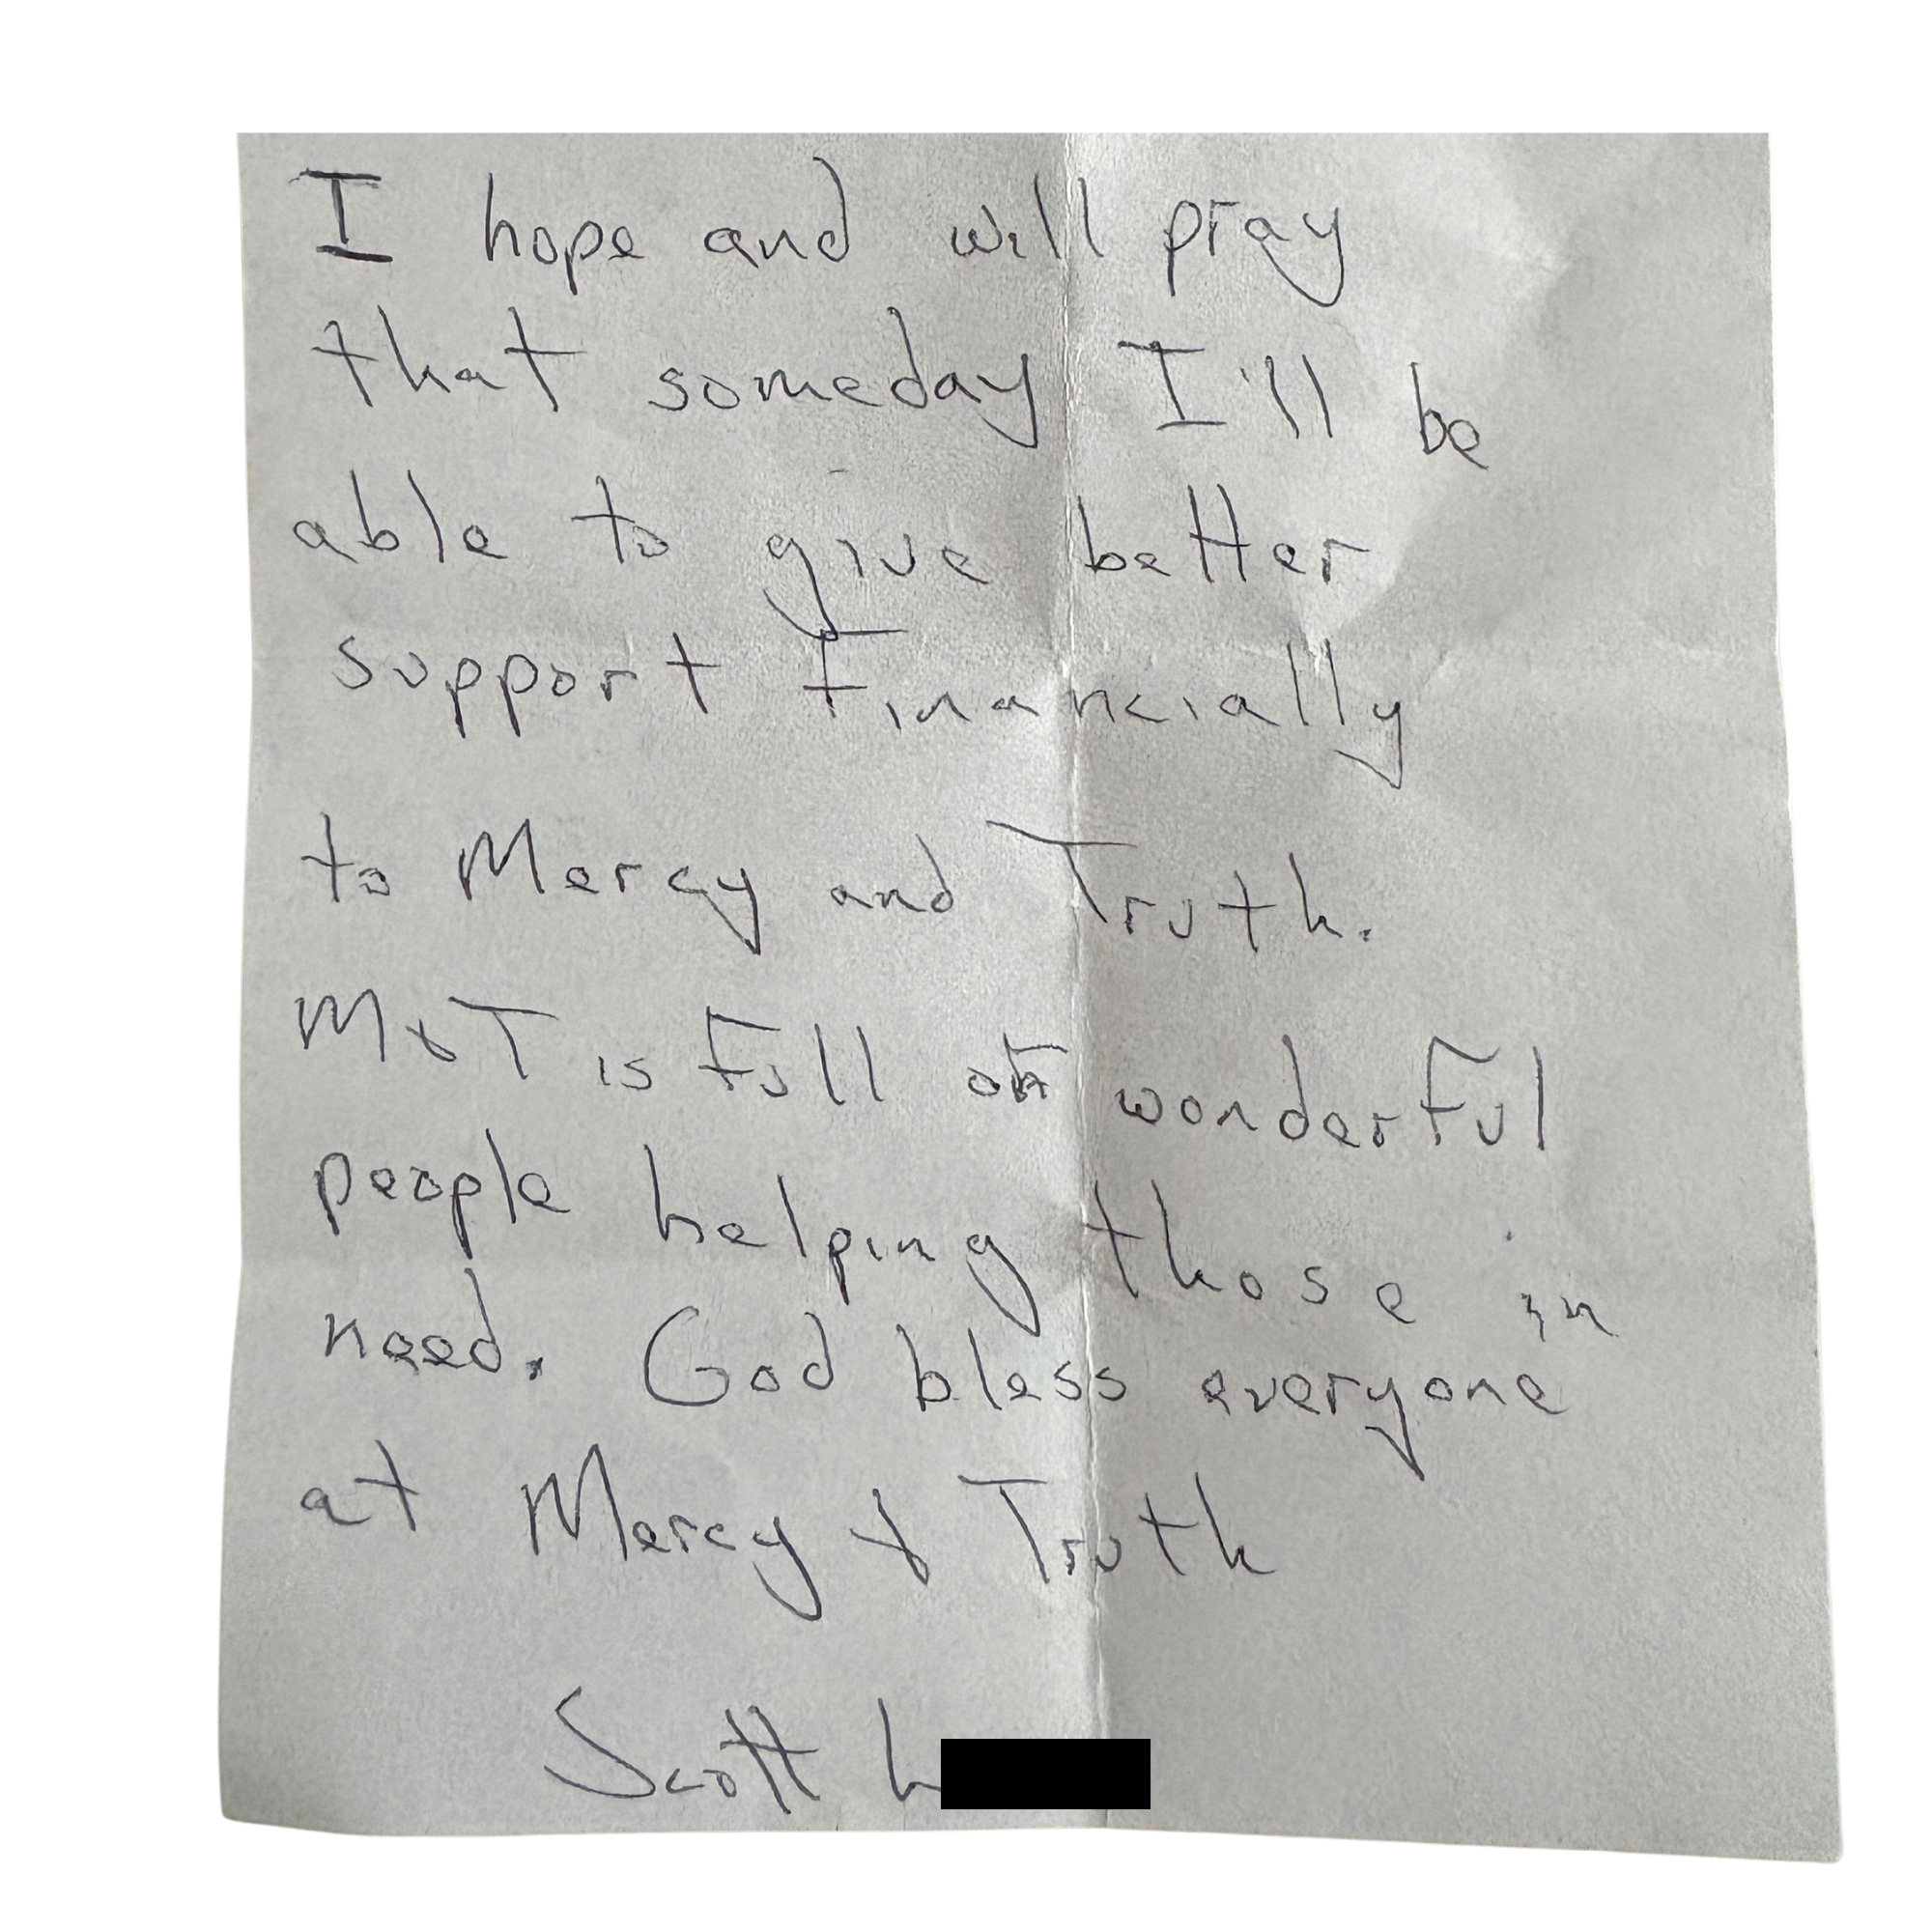 I hope and will pray
that someday I'll be
able to give better
support Financially
to Mercy and Truth.
M&T is Full of wonderful
people helping those in
need. God bless everyone
at Mercy & Truth
Scott